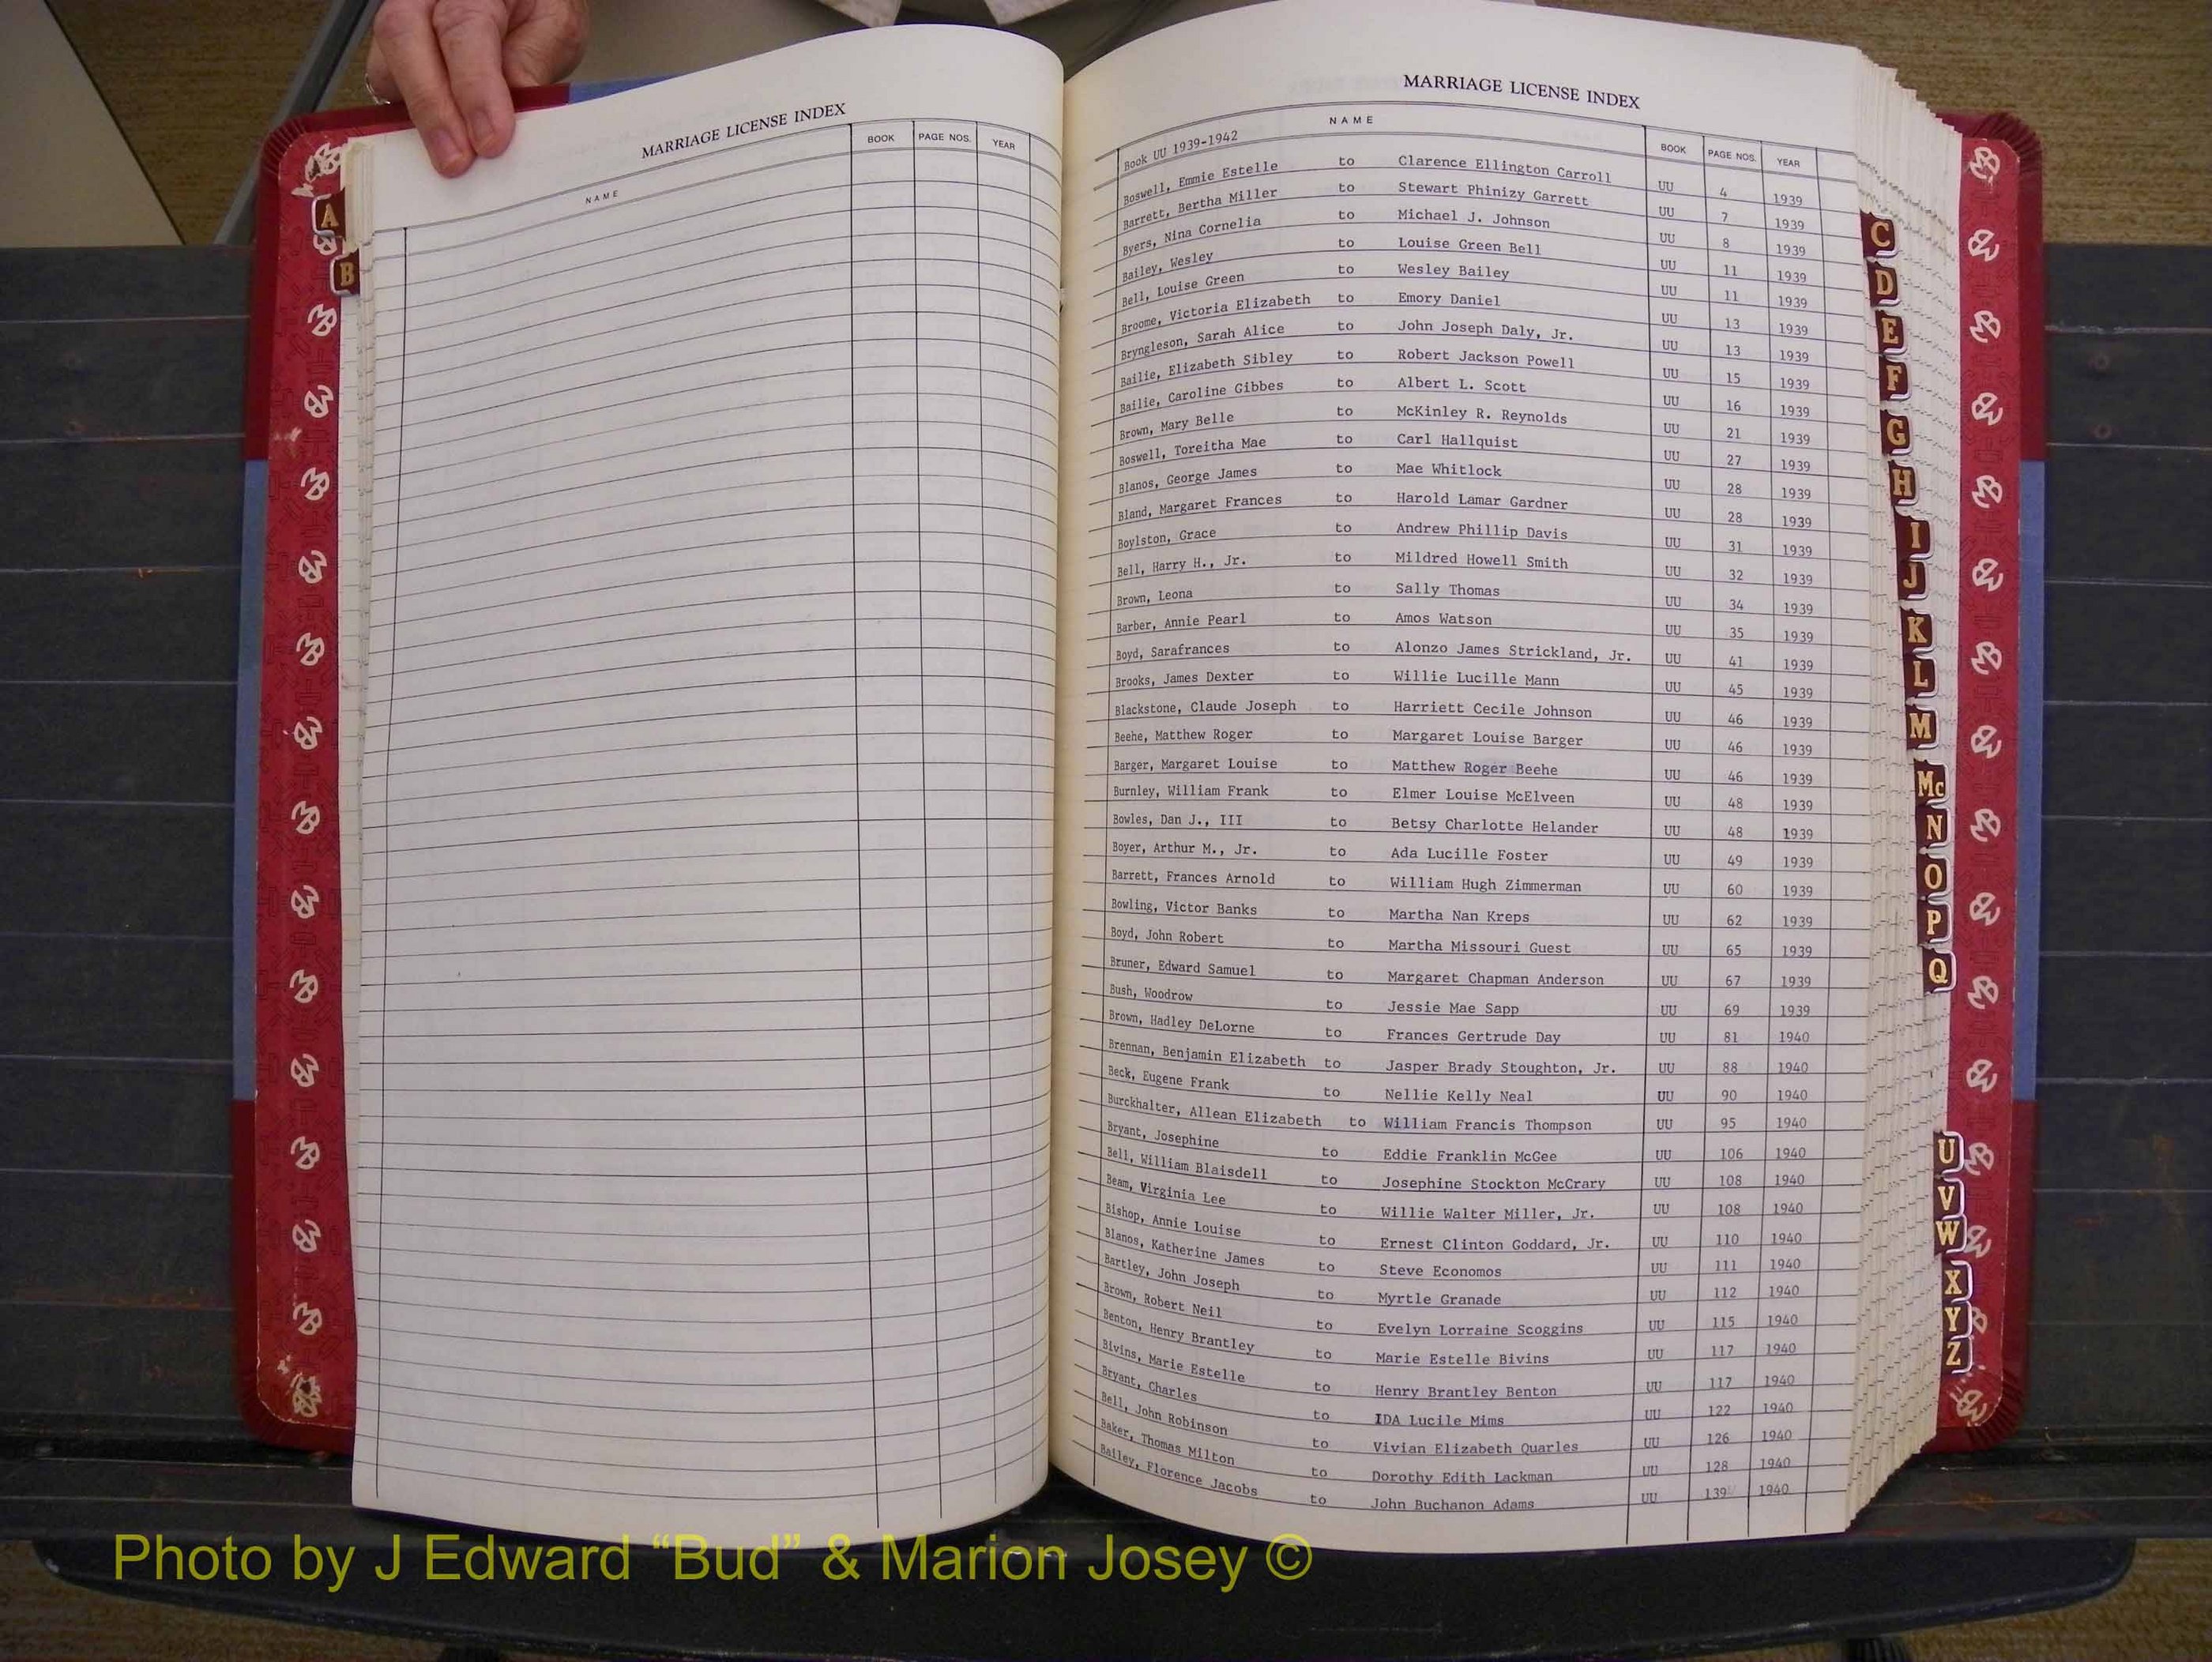 MARRIAGE LICENSE INDEX
NAME BOOK PAGE NOS. YEAR
A
B
MARRIAGE LICENSE INDEX
NAME BOOK PAGE NOS. YEAR
Book UU 1939-1942
Boswell, Emmie Estelle to Clarence Ellington Carroll UU 4 1939
Barrett, Bertha Miller to Stewart Phinizy Garrett UU 7 1939
Byers, Nina Cornelia to Michael J. Johnson UU 8 1939
Bailey, Wesley to Louise Green Bell UU 11 1939
Bell, Louise Green to Wesley Bailey UU 11 1939
Broome, Victoria Elizabeth to Emory Daniel UU 13 1939
Bryngleson, Sarah Alice to John Joseph Daly, Jr. UU 13 1939
Bailie, Elizabeth Sibley to Robert Jackson Powell UU 15 1939
Bailie, Caroline Gibbes to Albert L. Scott UU 16 1939
Brown, Mary Belle to McKinley R. Reynolds UU 21 1939
Boswell, Toreitha Mae to Carl Hallquist UU 27 1939
Blanos, George James to Mae Whitlock UU 28 1939
Bland, Margaret Frances to Harold Lamar Gardner UU 28 1939
Boylston, Grace to Andrew Phillip Davis UU 31 1939
Bell, Harry H., Jr. to Mildred Howell Smith UU 32 1939
Brown, Leona to Sally Thomas UU 34 1939
Barber, Annie Pearl to Amos Watson UU 35 1939
Boyd, Sarafrances to Alonzo James Strickland, Jr. UU 41 1939
Brooks, James Dexter to Willie Lucille Mann UU 45 1939
Blackstone, Claude Joseph to Harriett Cecile Johnson UU 46 1939
Beehe, Matthew Roger to Margaret Louise Barger UU 46 1939
Barger, Margaret Louise to Matthew Roger Beehe UU 46 1939
Burnley, William Frank to Elmer Louise McElveen UU 48 1939
Bowles, Dan J., III to Betsy Charlotte Helander UU 48 1939
Boyer, Arthur M., Jr. to Ada Lucille Foster UU 49 1939
Barrett, Frances Arnold to William Hugh Zimmerman UU 60 1939
Bowling, Victor Banks to Martha Nan Kreps UU 62 1939
Boyd, John Robert to Martha Missouri Guest UU 65 1939
Bruner, Edward Samuel to Margaret Chapman Anderson UU 67 1939
Bush, Woodrow to Jessie Mae Sapp UU 69 1939
Brown, Hadley DeLorne to Frances Gertrude Day UU 81 1940
Brennan, Benjamin Elizabeth to Jasper Brady Stoughton, Jr. UU 88 1940
Beck, Eugene Frank to Nellie Kelly Neal UU 90 1940
Burckhalter, Allean Elizabeth to William Francis Thompson UU 95 1940
Bryant, Josephine to Eddie Franklin McGee UU 106 1940
Bell, William Blaisdell to Josephine Stockton McCrary UU 108 1940
Beam, Virginia Lee to Willie Walter Miller, Jr. UU 108 1940
Bishop, Annie Louise to Ernest Clinton Goddard, Jr. UU 110 1940
Blanos, Katherine James to Steve Economos UU 111 1940
Bartley, John Joseph to Myrtle Granade UU 112 1940
Brown, Robert Neil to Evelyn Lorraine Scoggins UU 115 1940
Benton, Henry Brantley to Marie Estelle Bivins UU 117 1940
Bivins, Marie Estelle to Henry Brantley Benton UU 117 1940
Bryant, Charles to IDA Lucile Mims UU 122 1940
Bell, John Robinson to Vivian Elizabeth Quarles UU 126 1940
Baker, Thomas Milton to Dorothy Edith Lackman UU 128 1940
Bailey, Florence Jacobs to John Buchanon Adams UU 139 1940
C
D
E
F
G
H
I
J
K
L
M
Mc
N
O
P
Q
U
V
W
X
Y
Z
Photo by J Edward “Bud” & Marion Josey ©